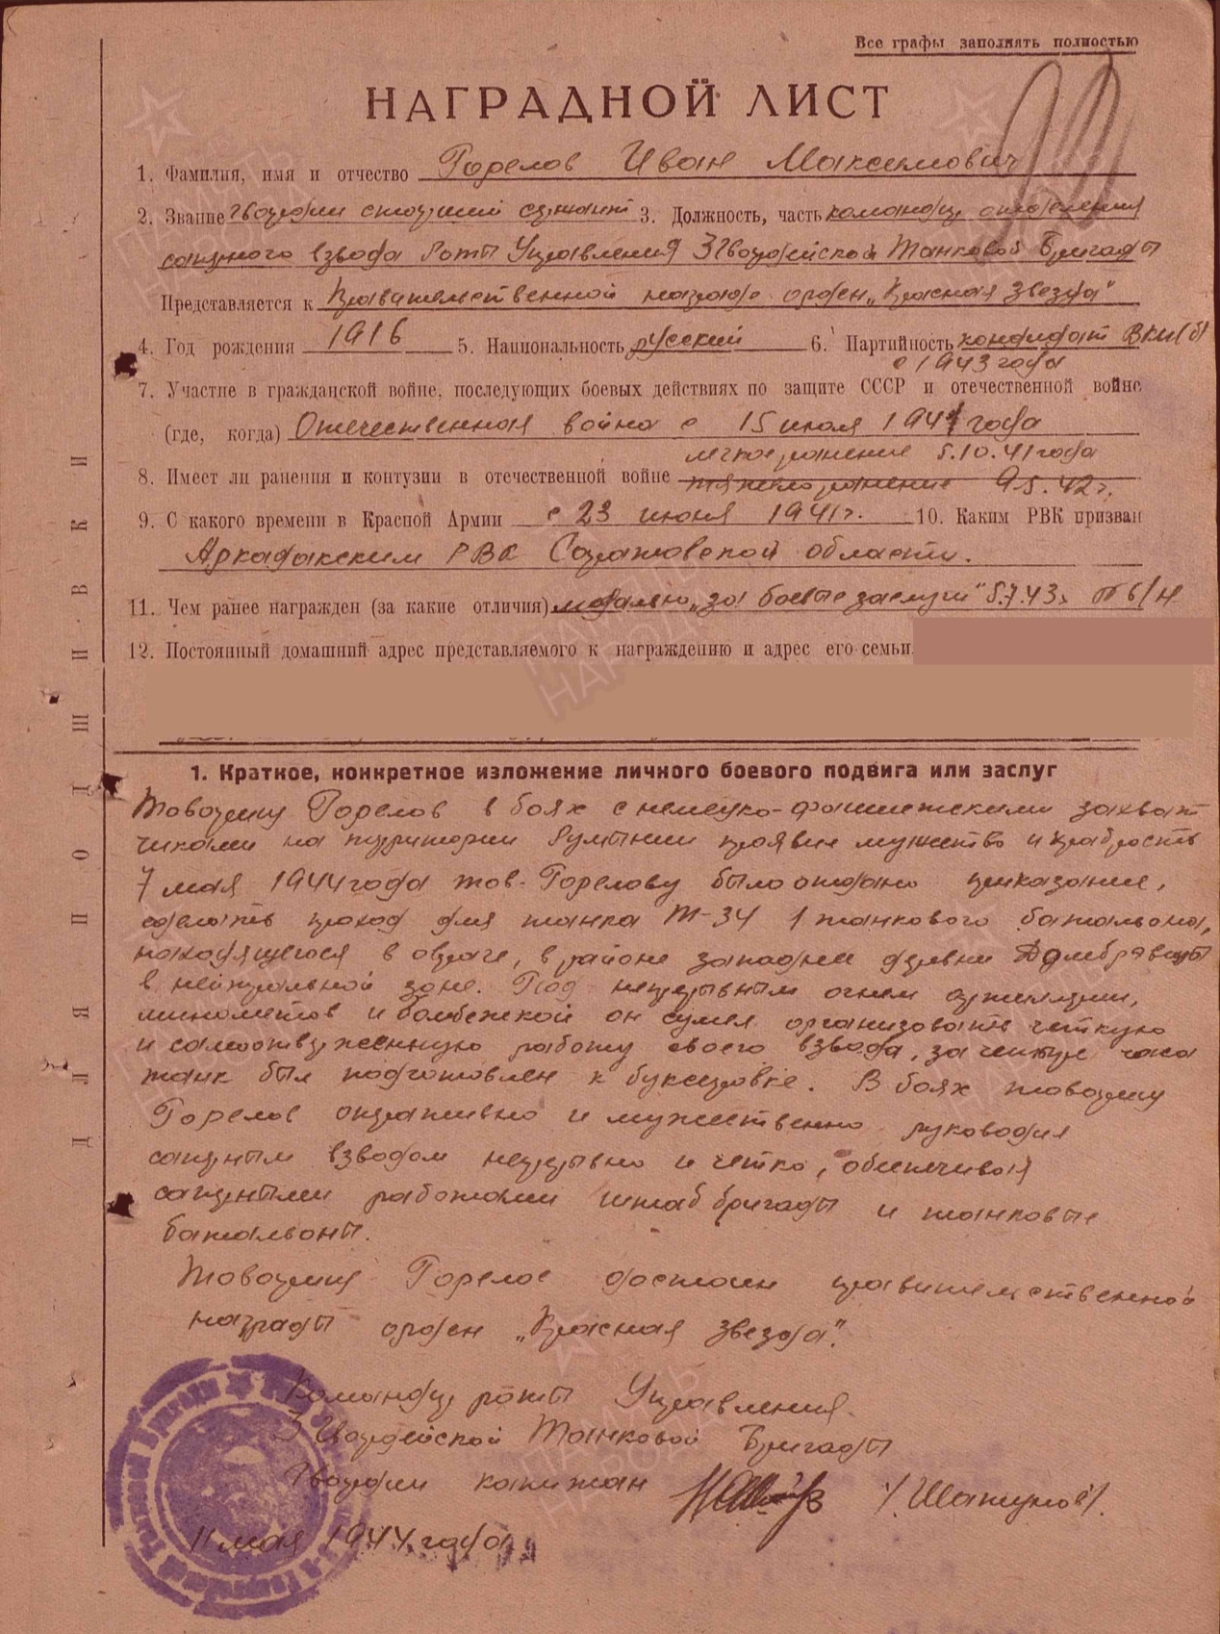 Все графы заполнять полностью
НАГРАДНОЙ ЛИСТ
1. Фамилия, имя и отчество Горелов Иван Максимович
2. Звание гвардии старший сержант 3. Должность, часть командир отделения
саперного взвода Роты Управления 3 Гвардейской Танковой Бригады
Представляется к Правительственной награде орден „Красная Звезда"
4. Год рождения 1916 5. Национальность русский 6. Партийность кандидат ВКП(б)
с 1943 года
7. Участие в гражданской войне, последующих боевых действиях по защите СССР и отечественной войне
(где, когда) Отечественная война с 15 июля 1941 года
легкое ранение 5.10.41 года
8. Имеет ли ранения и контузии в отечественной войне тяжело ранение 9.5.42 г.
9. С какого времени в Красной Армии с 23 июня 1941 г. 10. Каким РВК призван
Аркадакским РВК Саратовской области.
11. Чем ранее награжден (за какие отличия) медалью „за боевые заслуги" 5.7.43 г.
12. Постоянный домашний адрес представляемого к награждению и адрес его семьи
1. Краткое, конкретное изложение личного боевого подвига или заслуг
Товарищ Горелов в боях с немецко-фашистскими захват
чиками на территории Румынии проявил мужество и храбрость
7 мая 1944 года тов. Горелову было отдано приказание,
сделать проход для танка Т-34 1 танкового батальона,
находящегося в овраге, в районе западнее деревни
в нейтральной зоне. Под непрерывным огнем артиллерии,
минометов и бомбежкой он сумел организовать четкую
и самоотверженную работу своего взвода, за четыре часа
танк был подготовлен к буксировке. В боях товарищ
Горелов оперативно и мужественно руководил
саперным взводом непрерывно и четко, обеспечивая
саперными работами штаб бригады и танковые
батальоны.
Товарищ Горелов достоин правительственной
награды орден „Красная Звезда".
Командир роты Управления
3 Гвардейской Танковой Бригады
Гвардии капитан /Шатунов/.
11 мая 1944 года
ДЛЯ ПОДШИВКИ
ПАМЯТЬ
НАРОДА